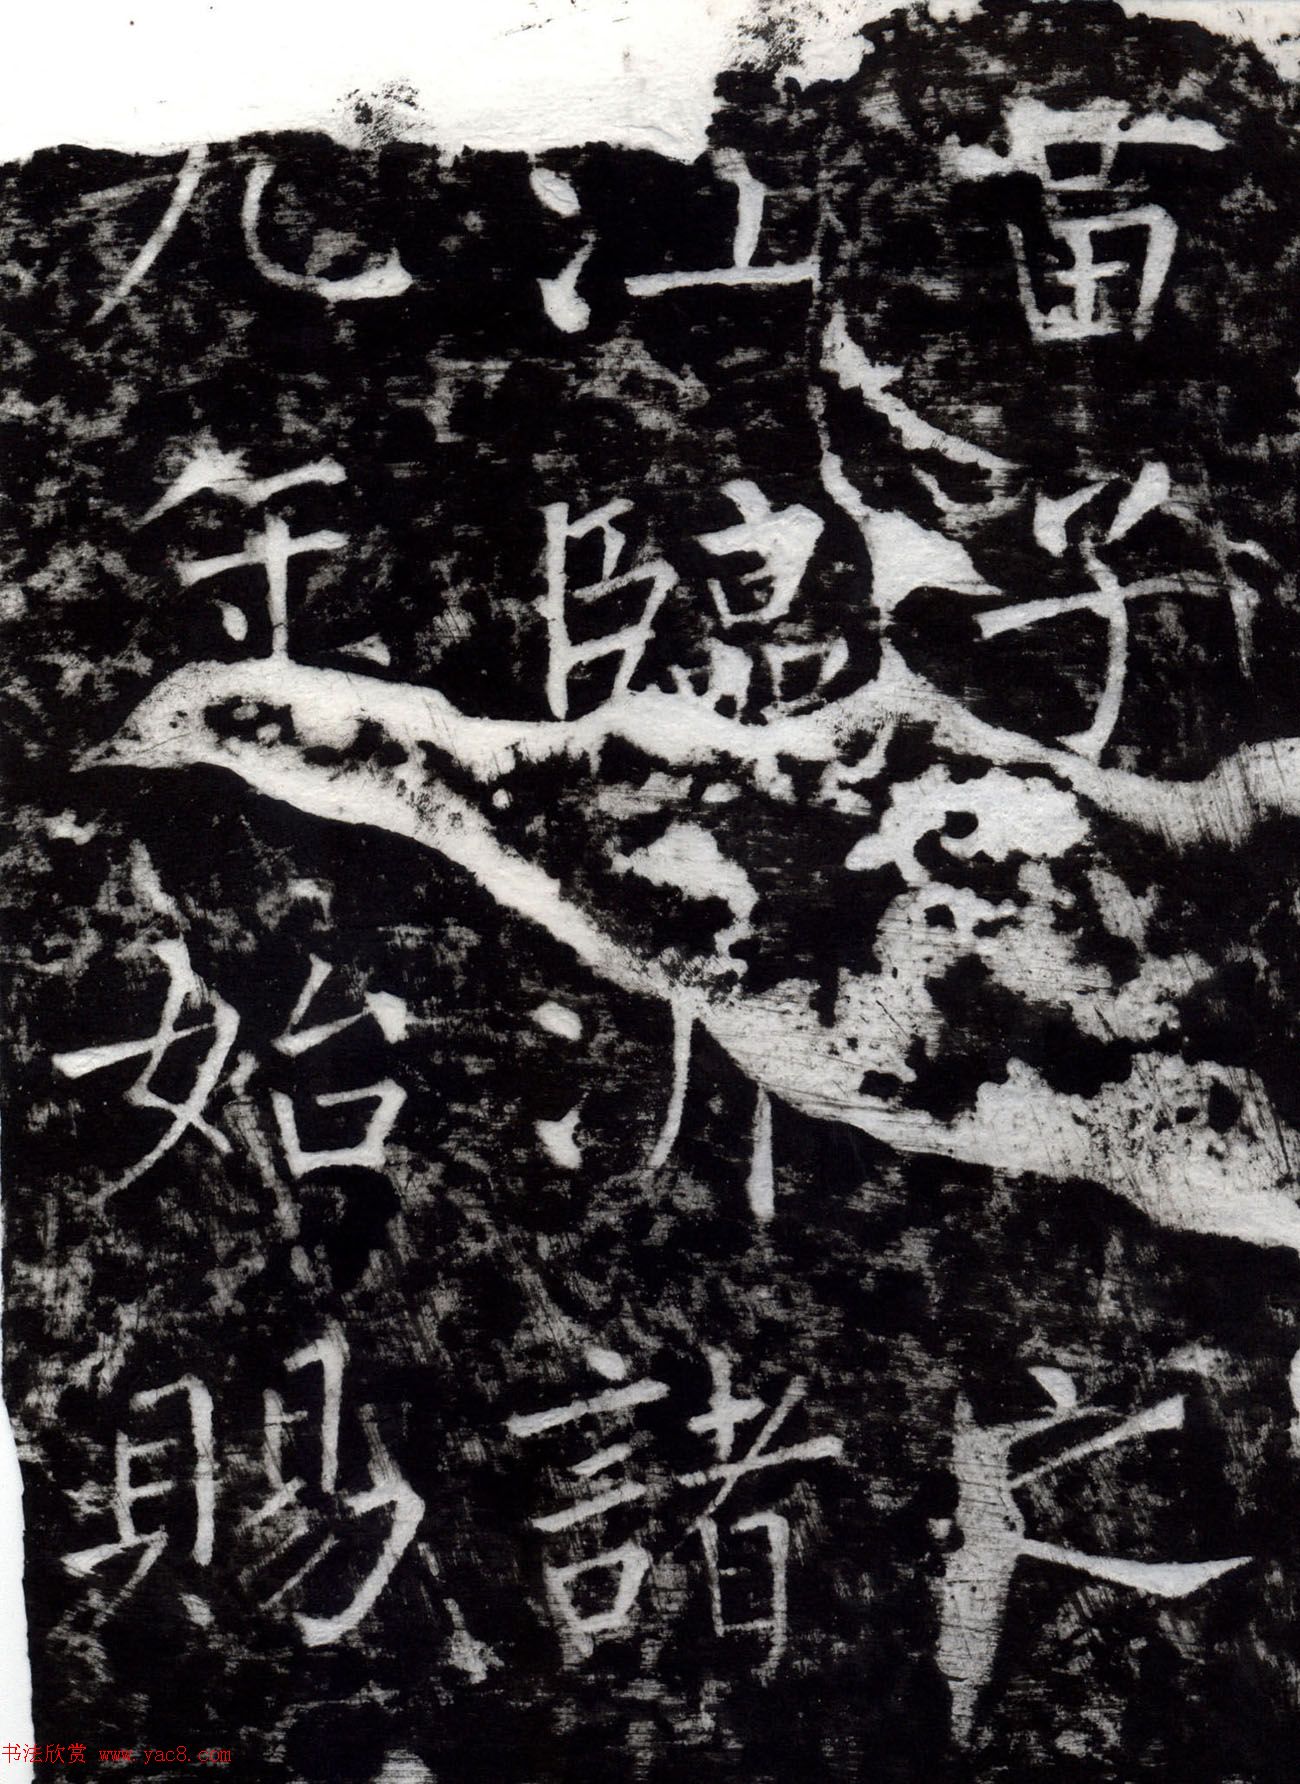 苗子之
江臨沂諸
九年始賜
书法欣赏 www.yac8.com